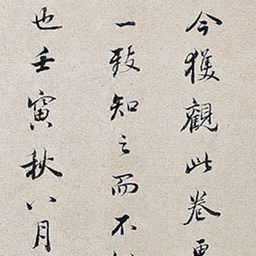 今獲觀此卷
一致知之而不
也壬寅秋八月